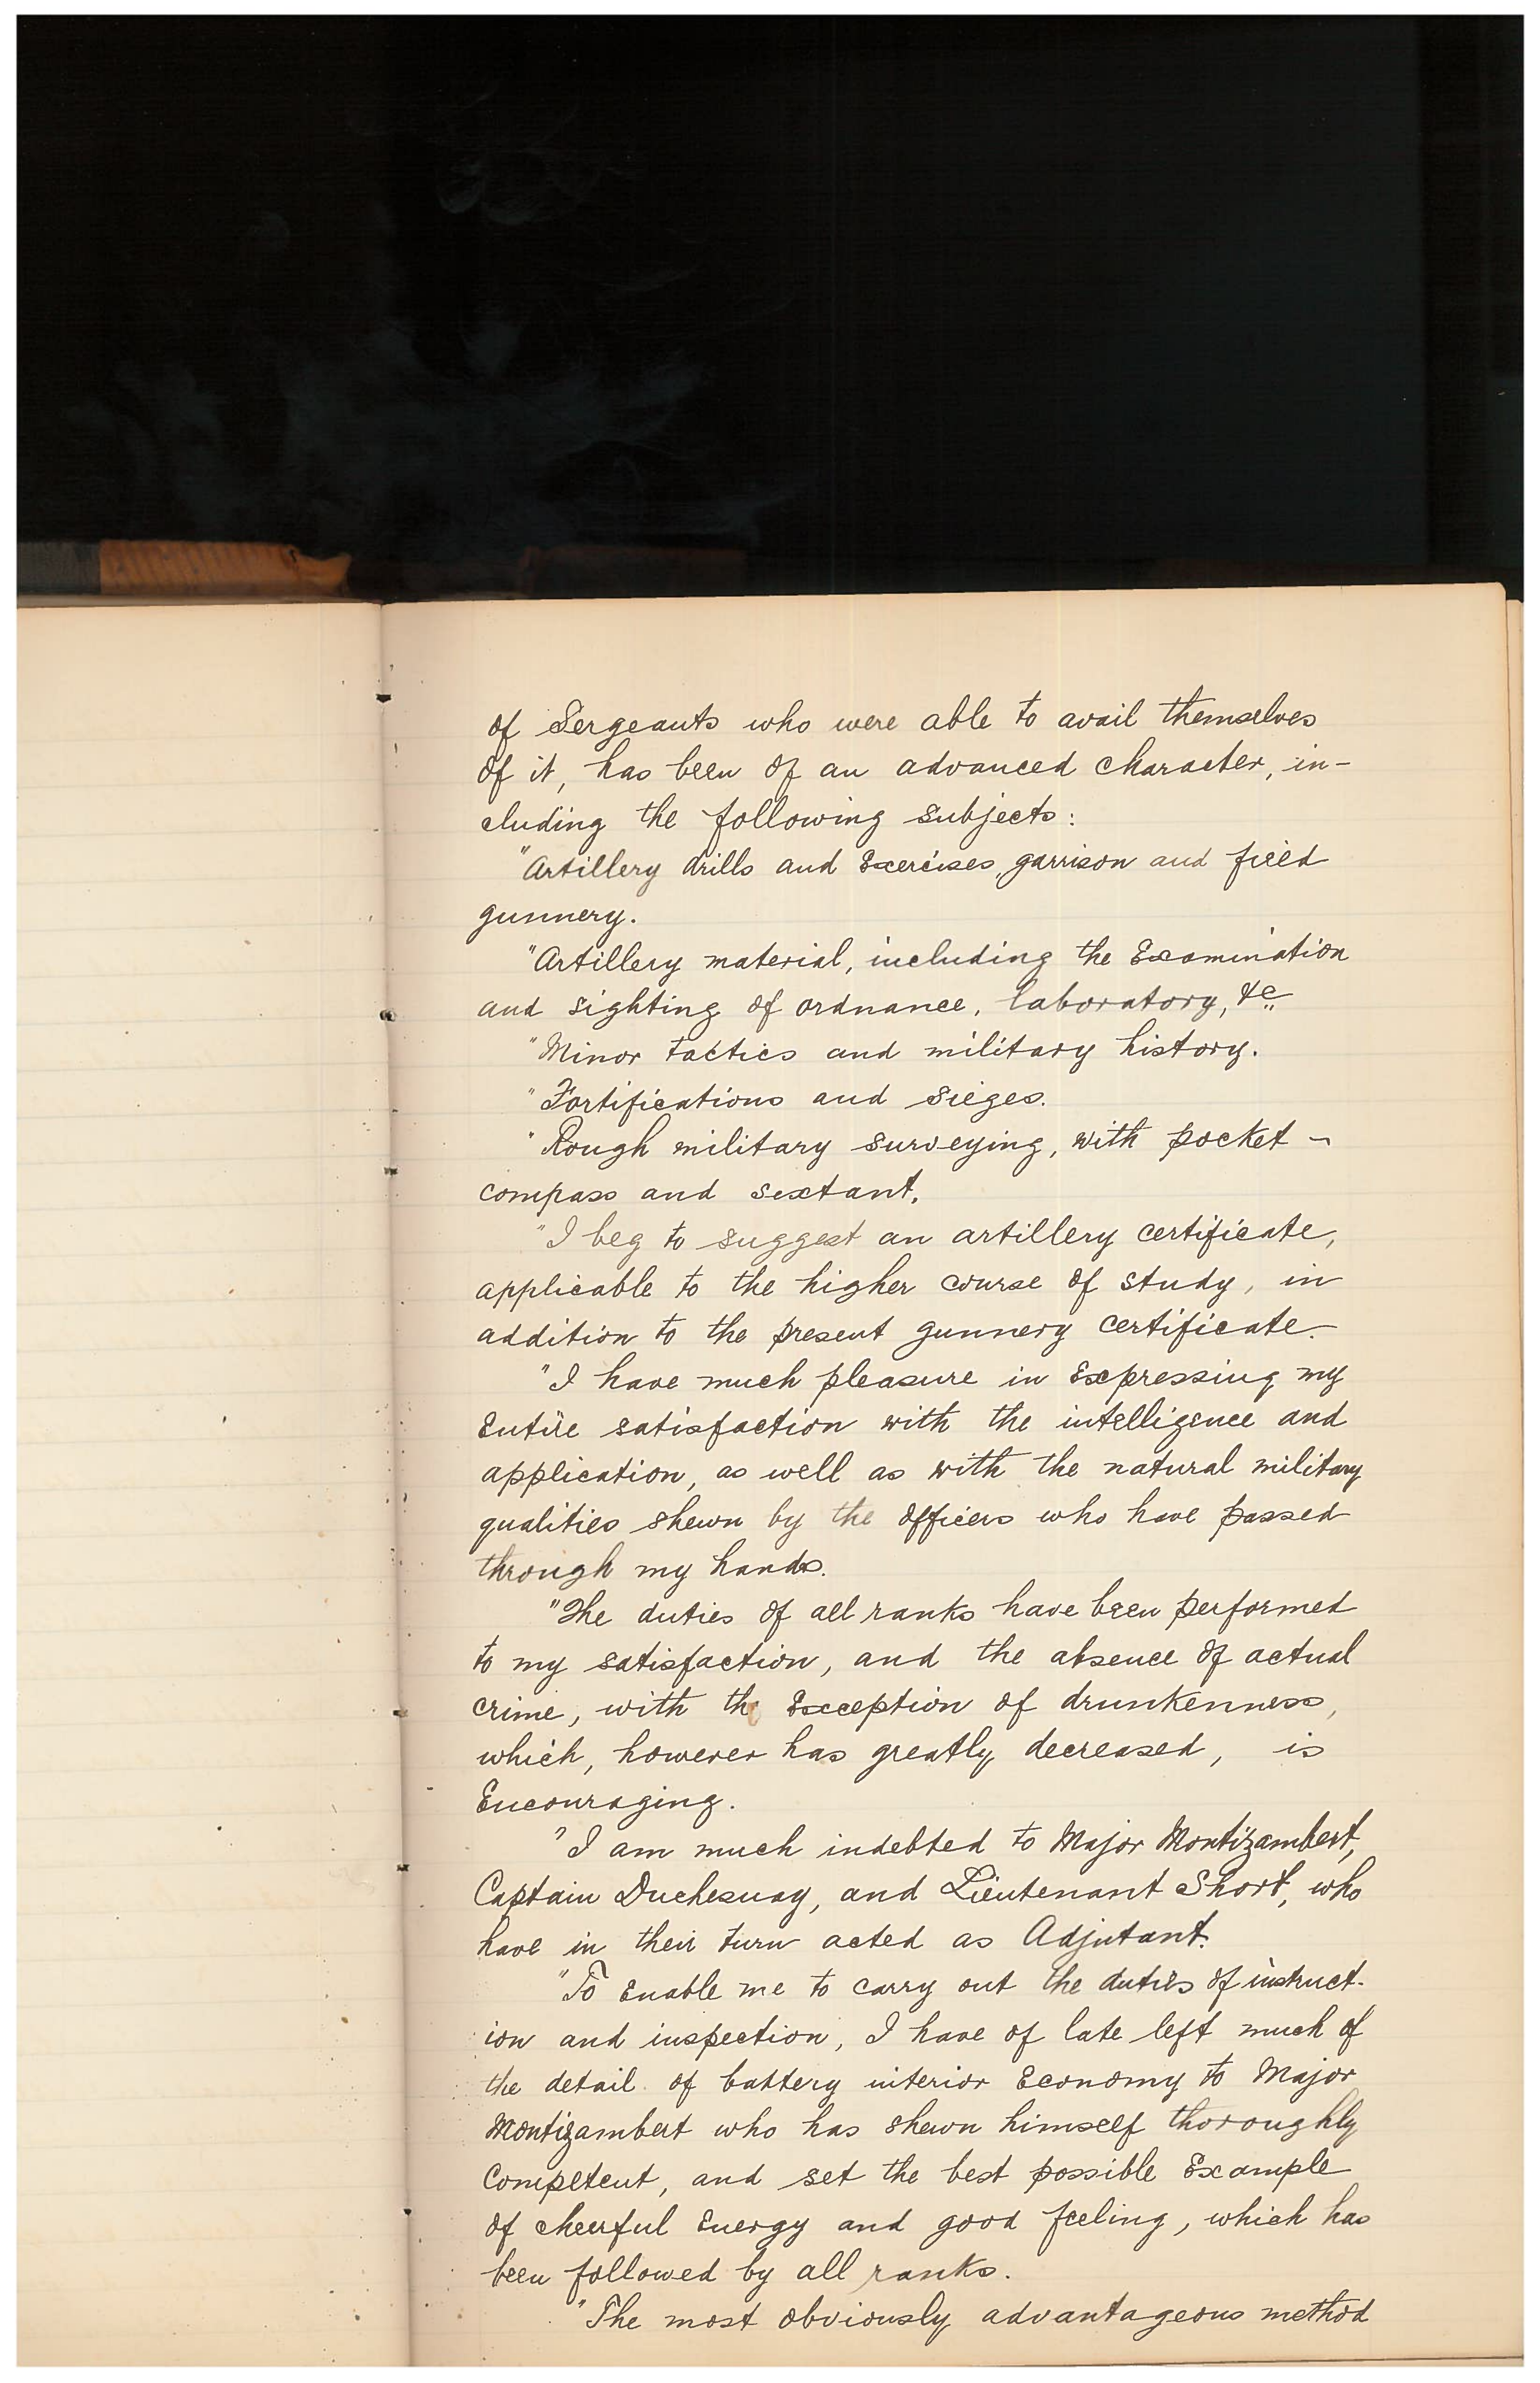 of Sergeants who were able to avail themselves
of it, has been of an advanced character, in-
cluding the following subjects:
"Artillery drills and Exercises, garrison and field
gunnery.
"Artillery material, including the Examination
and sighting of ordnance, laboratory, &c.
"Minor tactics and military history.
"Fortifications and sieges.
"Rough military surveying, with pocket -
compass and sextant.
"I beg to suggest an artillery certificate,
applicable to the higher course of study, in
addition to the present gunnery certificate.
"I have much pleasure in Expressing my
Entire satisfaction with the intelligence and
application, as well as with the natural military
qualities shewn by the officers who have passed
through my hands.
"The duties of all ranks have been performed
to my satisfaction, and the absence of actual
crime, with the Exception of drunkenness,
which, however has greatly decreased, is
Encouraging.
"I am much indebted to Major Montizambert,
Captain Duchesnay, and Lieutenant Short, who
have in their turn acted as Adjutant.
"To Enable me to carry out the duties of instruct-
ion and inspection, I have of late left much of
the detail of battery interior Economy to Major
Montizambert who has shewn himself thoroughly
Competent, and set the best possible Example
of cheerful Energy and good feeling, which has
been followed by all ranks.
"The most obviously advantageous method